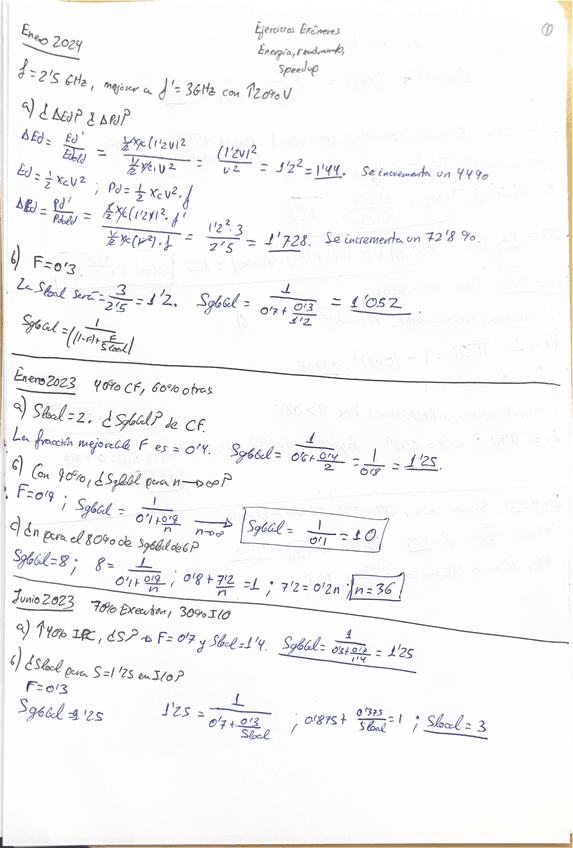 Ejercicios Exámenes
Energía, rendimiento,
Speedup
①
Enero 2024
f = 2'5 GHz, mejorar a f' = 3GHz con ↑20% V.
a) ¿ΔEd? ¿ΔPd?
ΔEd = Ed'/Edold = ½XC(1'2V)²/½XCV² = (1'2V)²/V² = 1'2² = 1'44. Se incrementa un 44%
Ed = ½XCV² ; Pd = ½XCV²·f
ΔPd = Pd'/Pdold = ½XC(1'2V)²·f'/½XC(V²)·f = 1'2²·3/2'5 = 1'728. Se incrementa un 72'8%.
b) F = 0'3.
La Slocal será = 3/2'5 = 1'2. Sglobal = 1/(0'7 + 0'3/1'2) = 1'052
Sglobal = 1/((1-F) + F/Slocal)
Enero 2023 40% CF, 60% otras
a) Slocal = 2. ¿Sglobal? de CF.
La fracción mejorable F es = 0'4. Sglobal = 1/(0'6 + 0'4/2) = 1/0'8 = 1'25.
b) Con 90%, ¿Sglobal para n → ∞?
F = 0'9 ; Sglobal = 1/(0'1 + 0'9/n) n→∞ → Sglobal = 1/0'1 = 10
c) ¿n para el 80% de Sglobal de b?
Sglobal = 8 ; 8 = 1/(0'1 + 0'9/n) ; 0'8 + 7'2/n = 1 ; 7'2 = 0'2n ; n = 36
Junio 2023 70% Execution, 30% I/O
a) ↑40% IPC, ¿S? → F = 0'7 y Slocal = 1'4. Sglobal = 1/(0'3 + 0'7/1'4) = 1'25
b) ¿Slocal para S = 1'25 en I/O?
F = 0'3
Sglobal = 1'25 1'25 = 1/(0'7 + 0'3/Slocal) ; 0'875 + 0'375/Slocal = 1 ; Slocal = 3